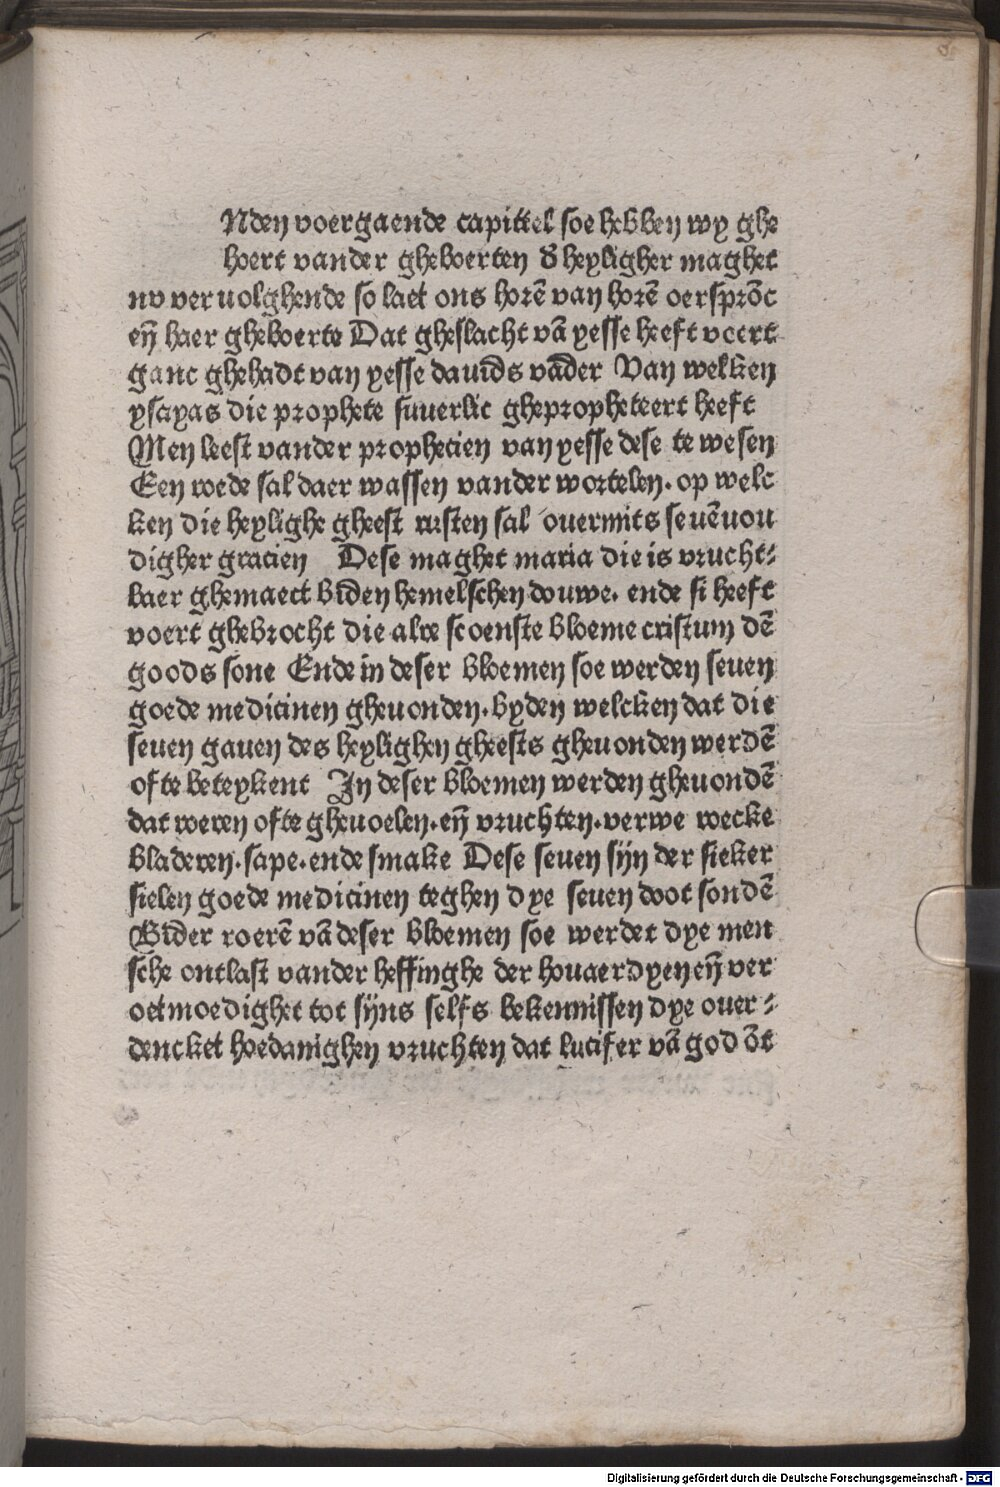 Nden voergaende capittel soe hebben wy ghe
hoert vander gheboerten d̕ heyligher maghet
nv ver uolghende so laet ons horē van horē oersprōc
en̄ haer gheboerte Dat gheslacht vā yesse heeft voert
ganc ghehadt van yesse dauids vāder Van welken
ysayas die prophete suuerlic ghepropheteert heeft
Men leest vander prophecien van yesse dese te wesen
Een roede sal daer wassen vander wortelen. op welc
ken die heylighe gheest rusten sal ouermits seuēuou
digher gracien Dese maghet maria die is vrucht⸗
baer ghemaect biden hemelschen douwe. ende si heeft
voert ghebrocht die alre scoenste bloeme cristum dē
goods sone Ende in deser bloemen soe werden seuen
goede medicinen gheuonden. byden welcken dat die
seuen gauen des heylighen gheests gheuonden werdē
ofte beteykent In deser bloemen werden gheuondē
dat roeren ofte gheuoelen. en̄ vruchten. verwe roecke
bladeren. sape. ende smake Dese seuen sijn der sieker
sielen goede medicinen teghen dye seuen doot sondē
Bider roerē vā deser bloemen soe werdet dye men
sche ontlast vander heffinghe der houaerdyen en̄ ver
oetmoedighet tot sijns selfs bekennissen dye ouer⸗
dencket hoedanighen vruchten dat lucifer vā god ōt
Digitalisierung gefördert durch die Deutsche Forschungsgemeinschaft - DFG